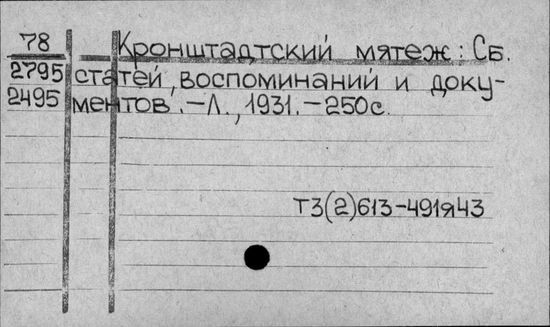 78 Кронштадтский мятеж: Сб.
2795 статей, воспоминаний и доку-
2495 ментов.-Л., 1931.-250с.
Т3(2)613-491я43